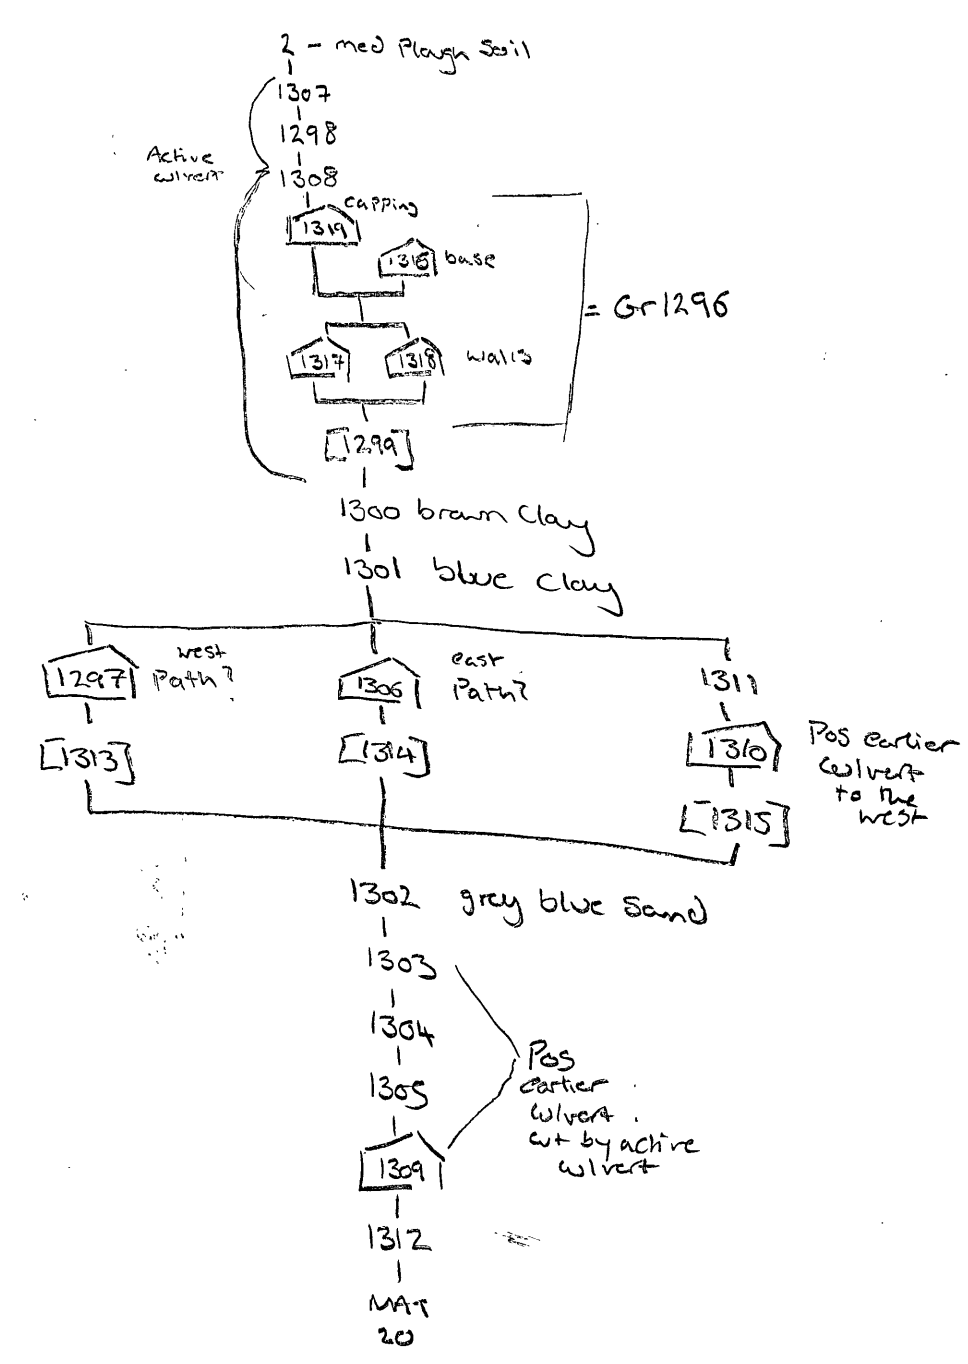 2 - med Plough Soil
1307
1298
Active
culvert
1308
capping
1319
1316 base
= Gr1296
1317 1318 walls
[1299]
1300 brown Clay
1301 blue Clay
west
1297 Path?
east
1306 Path?
1311
[1313]
[1314]
1310
Pos earlier
culvert
to the
west
[1315]
1302 grey blue Sand
1303
1304
1305
Pos
earlier
culvert
cut by active
culvert
1309
1312
MAT
20